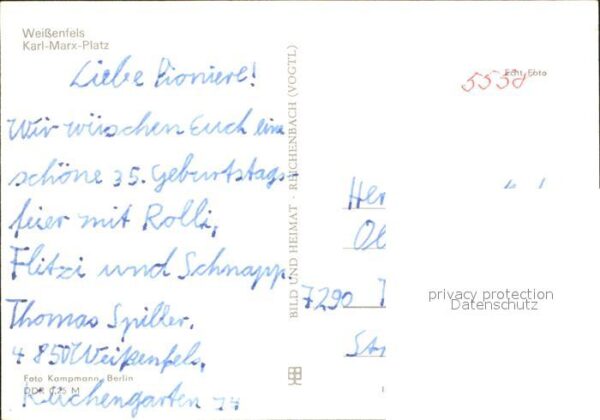 Weißenfels
Karl-Marx-Platz
Liebe Pioniere!
Wir wüschen Euch eine
schöne 35. Geburtstags-
feier mit Rolli,
Flitzi und Schnapp.
Thomas Spiller,
4850 Weißenfels,
Foto Kampmann, Berlin
DDR 0,25 M
Küchengarten 14
BILD UND HEIMAT · REICHENBACH (VOGTL)
Echt Foto
5550
Her
7290
privacy protection
Datenschutz